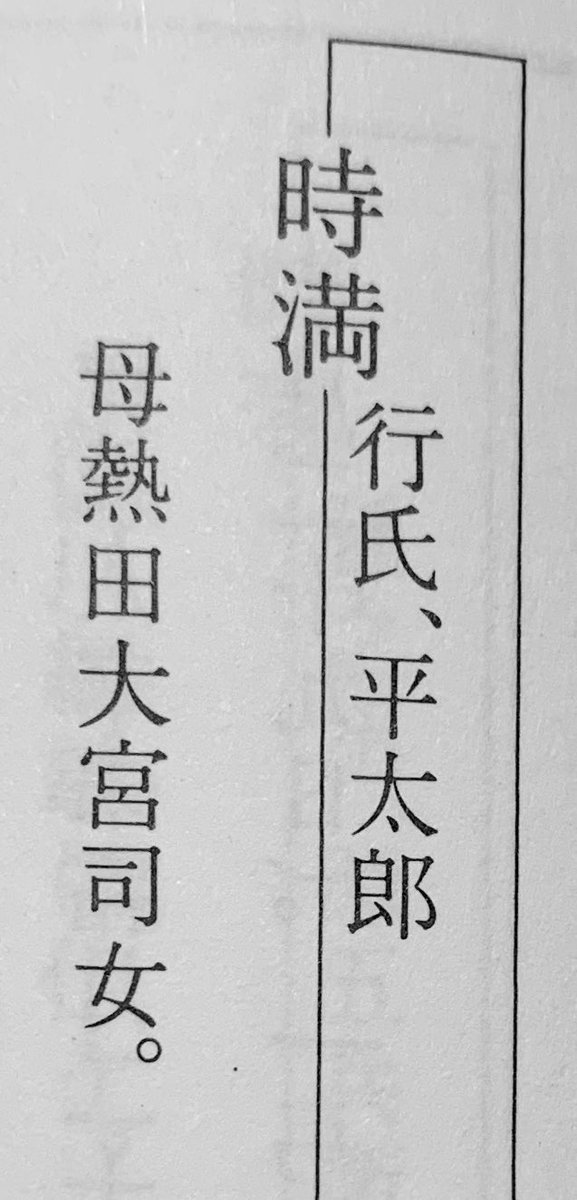 時満
行氏、平太郎
母熱田大宮司女。